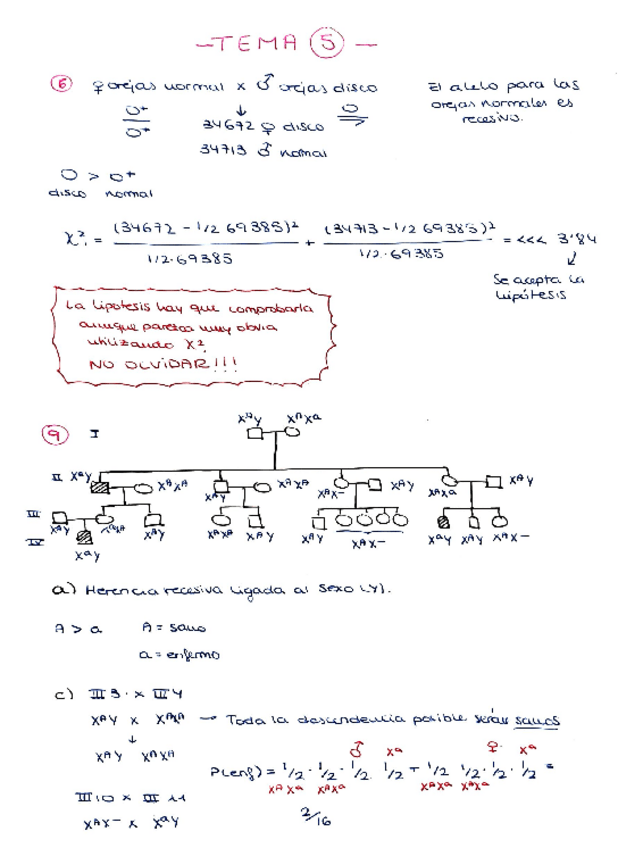 - TEMA 5 -
6 ♀ orejas normal x ♂ orejas disco
El alelo para las orejas normales es recesivo.
O+
O+
↓
O
34672 ♀ disco
34713 ♂ normal
O > O+
disco normal
χ²₁ = (34672 - 1/2 69385)² / 1/2·69385 + (34713 - 1/2 69385)² / 1/2·69385 = <<< 3'84
↓
Se acepta la hipótesis
La hipótesis hay que comprobarla
aunque parezca muy obvia
utilizando χ²
NO OLVIDAR!!!
9 I XAY XAXa
II XaY XAXA XAY XAXA XAX- XAY XAXa XAY
III XAY XAXa XAY XAXA XAY XAY XAX- XaY XAY XAX-
IV XaY
a) Herencia recesiva ligada al sexo
A > a A = sano
a = enfermo
c) III 3 x III 4
XAY x XAXA → Toda la descendencia posible serán sanos
↓
XAY XAXA
♂ Xa ♀ Xa
P(enf) = 1/2 · 1/2 · 1/2 · 1/2 + 1/2 1/2 · 1/2 · 1/2 =
XAXa XAXa XAXa XAXa
III 10 x III 11
XAX- x XaY
2/16